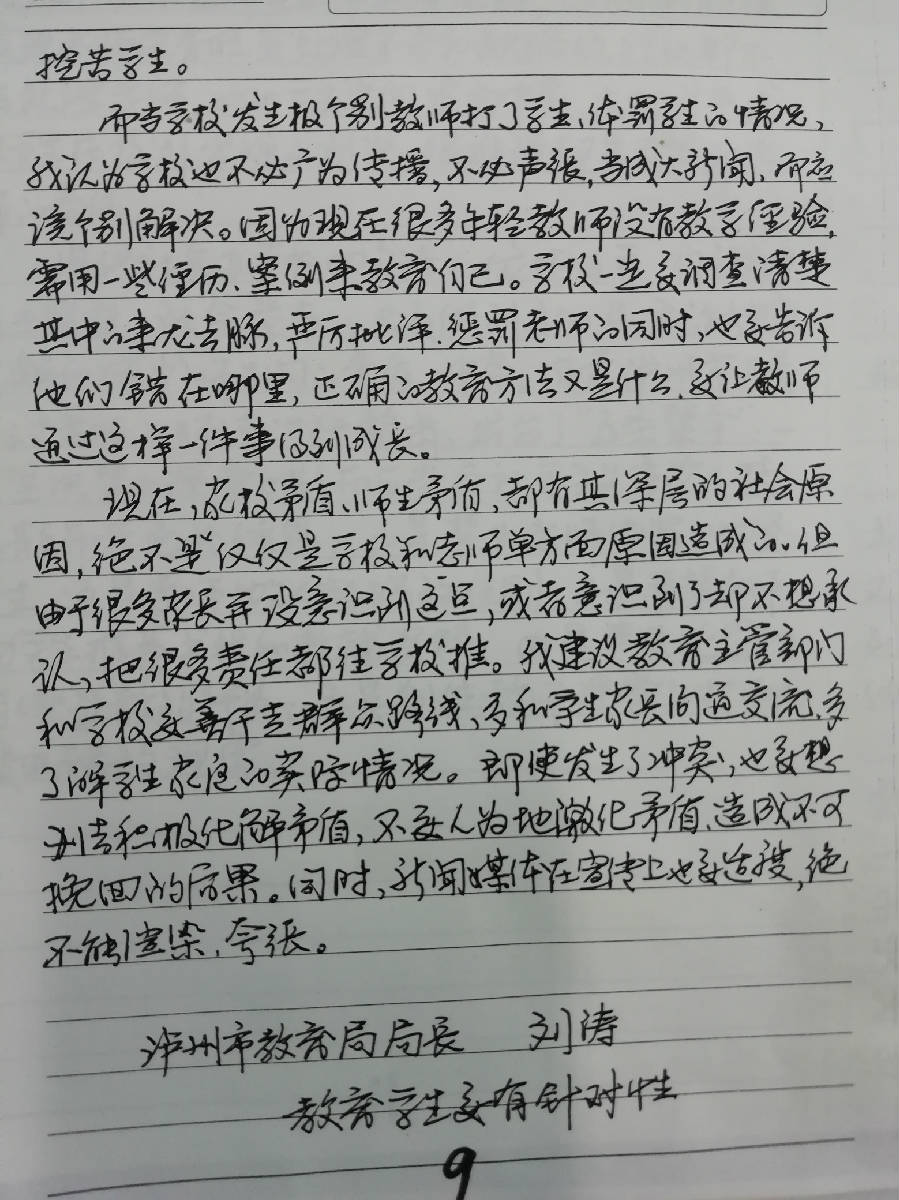 挖苦学生。
而当学校发生极个别教师打了学生、体罚学生的情况，
我认为学校也不必广为传播，不必声张，当成大新闻，而应
该个别解决。因为现在很多年轻教师没有教学经验，
需用一些经历、案例来教育自己。学校一定要调查清楚
其中的来龙去脉，严厉批评、惩罚老师的同时，也要告诉
他们错在哪里，正确的教育方法又是什么，要让教师
通过这样一件事得到成长。
现在，家校矛盾、师生矛盾，都有其深层的社会原
因，绝不是仅仅是学校和老师单方面原因造成的。但
由于很多家长并没意识到这点，或者意识到了却不想承
认，把很多责任都往学校推。我建议教育主管部门
和学校要善于走群众路线，多和学生家长沟通交流，多
了解学生家庭的实际情况。即使发生了冲突，也要想
办法积极化解矛盾，不要人为地激化矛盾，造成不可
挽回的后果。同时，新闻媒体在宣传上也要适度，绝
不能渲染、夸张。
泸州市教育局局长 刘涛
教育学生要有针对性
9